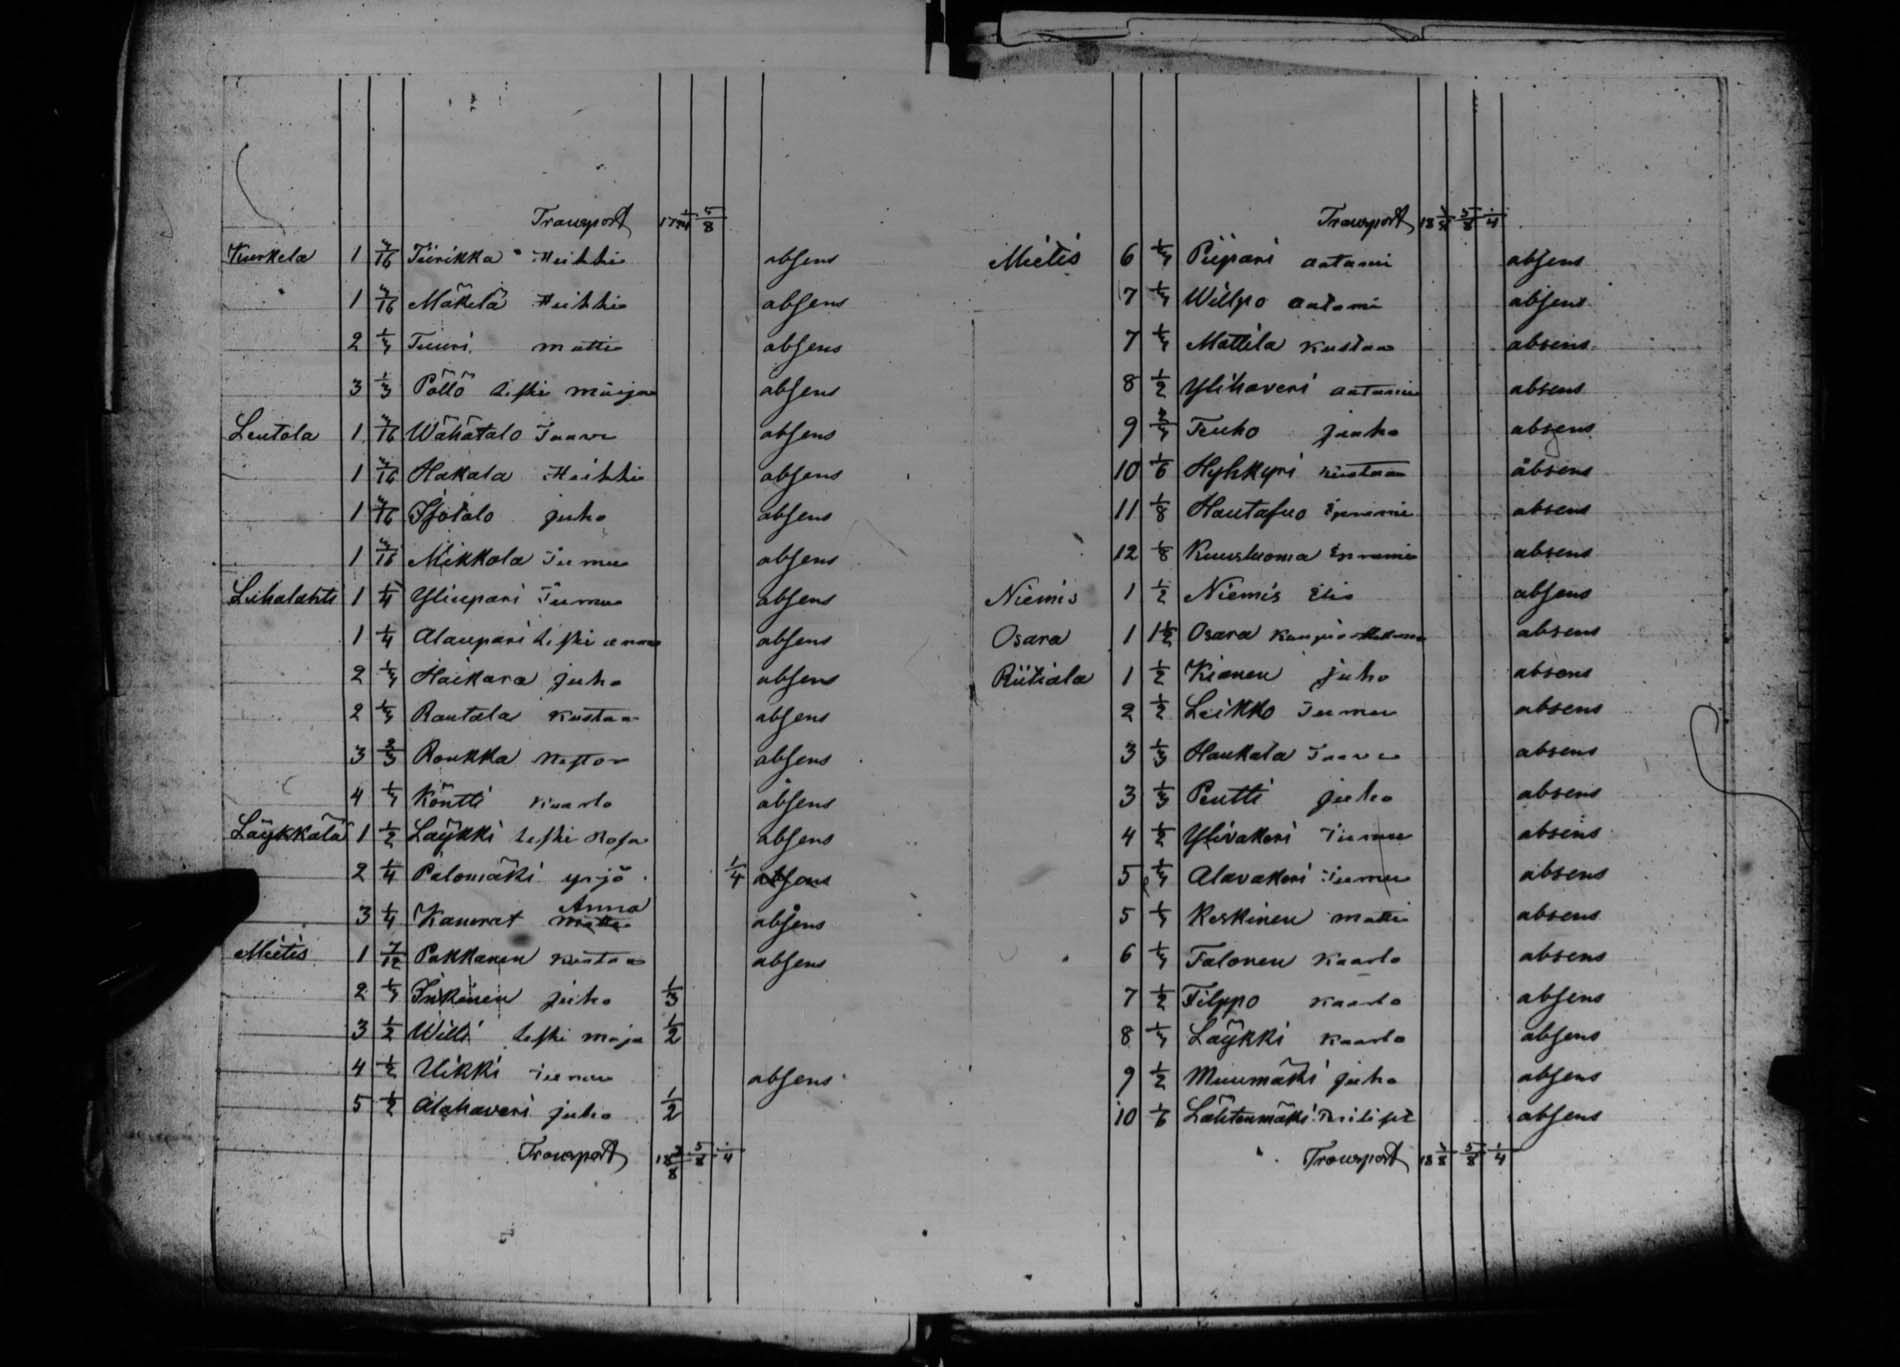 Transport 5/8
Kurkela 1 3/16 Tiirikka Heikki absens
1 3/16 Mäkelä Heikki absens
2 1/4 Tuuri matti absens
3 1/3 Pöllö Leski maija absens
Leutola 1 3/16 Wähätalo Taave absens
1 3/16 Hakala Heikki absens
1 3/16 Isotalo juho absens
1 3/16 Mikkola Teemu absens
Lihalahti 1 1/4 Yliupari Teemu absens
1 1/4 Alaupari Leski anna absens
2 1/4 Haikara juho absens
2 1/4 Rautala Kustaa absens
3 2/3 Roukka Nestor absens
4 1/4 Köntti Kaarlo absens
Läykkälä 1 1/2 Läykki Leski Rosa absens
2 1/4 Palomäki yrjö 1/4 absens
3 1/4 Kamrat Anna absens
Mietis 1 7/12 Pakkanen Kustaa absens
2 1/4 Inkinen juho 1/3
3 1/2 Willi Leski maja 1/2
4 1/2 Uikki Teemu absens
5 1/2 Alahaveri juho 1/2
Transport 18 3/8 5/8 1/4
Transport 18 3/8 5/8 1/4
Mietis 6 1/4 Piipari aatami absens
7 1/4 Wilppo aatami absens
7 1/4 Mattila Kustaa absens
8 1/2 Ylihaveri aatami absens
9 Teuho juho absens
10 1/6 Hyhkyri Kustaa absens
11 1/8 Hautasuo absens
12 1/8 Kuusluoma absens
Niemis 1 1/2 Niemis Elis absens
Osara 1 1 1/2 Osara absens
Riitiala 1 1/2 Kianen juho absens
2 1/2 Leikko Teemu absens
3 1/3 Haukala Taave absens
3 1/3 Pentti juho absens
4 1/2 Ylivakeri Teemu absens
5 1/4 Alavakeri Teemu absens
5 1/4 Keskinen matti absens
6 1/4 Talonen Kaarlo absens
7 1/2 Filppo Kaarlo absens
8 1/4 Läykki Kaarlo absens
9 1/2 Muumäki juho absens
10 1/6 Lähteenmäki absens
Transport 18 3/8 5/8 1/4